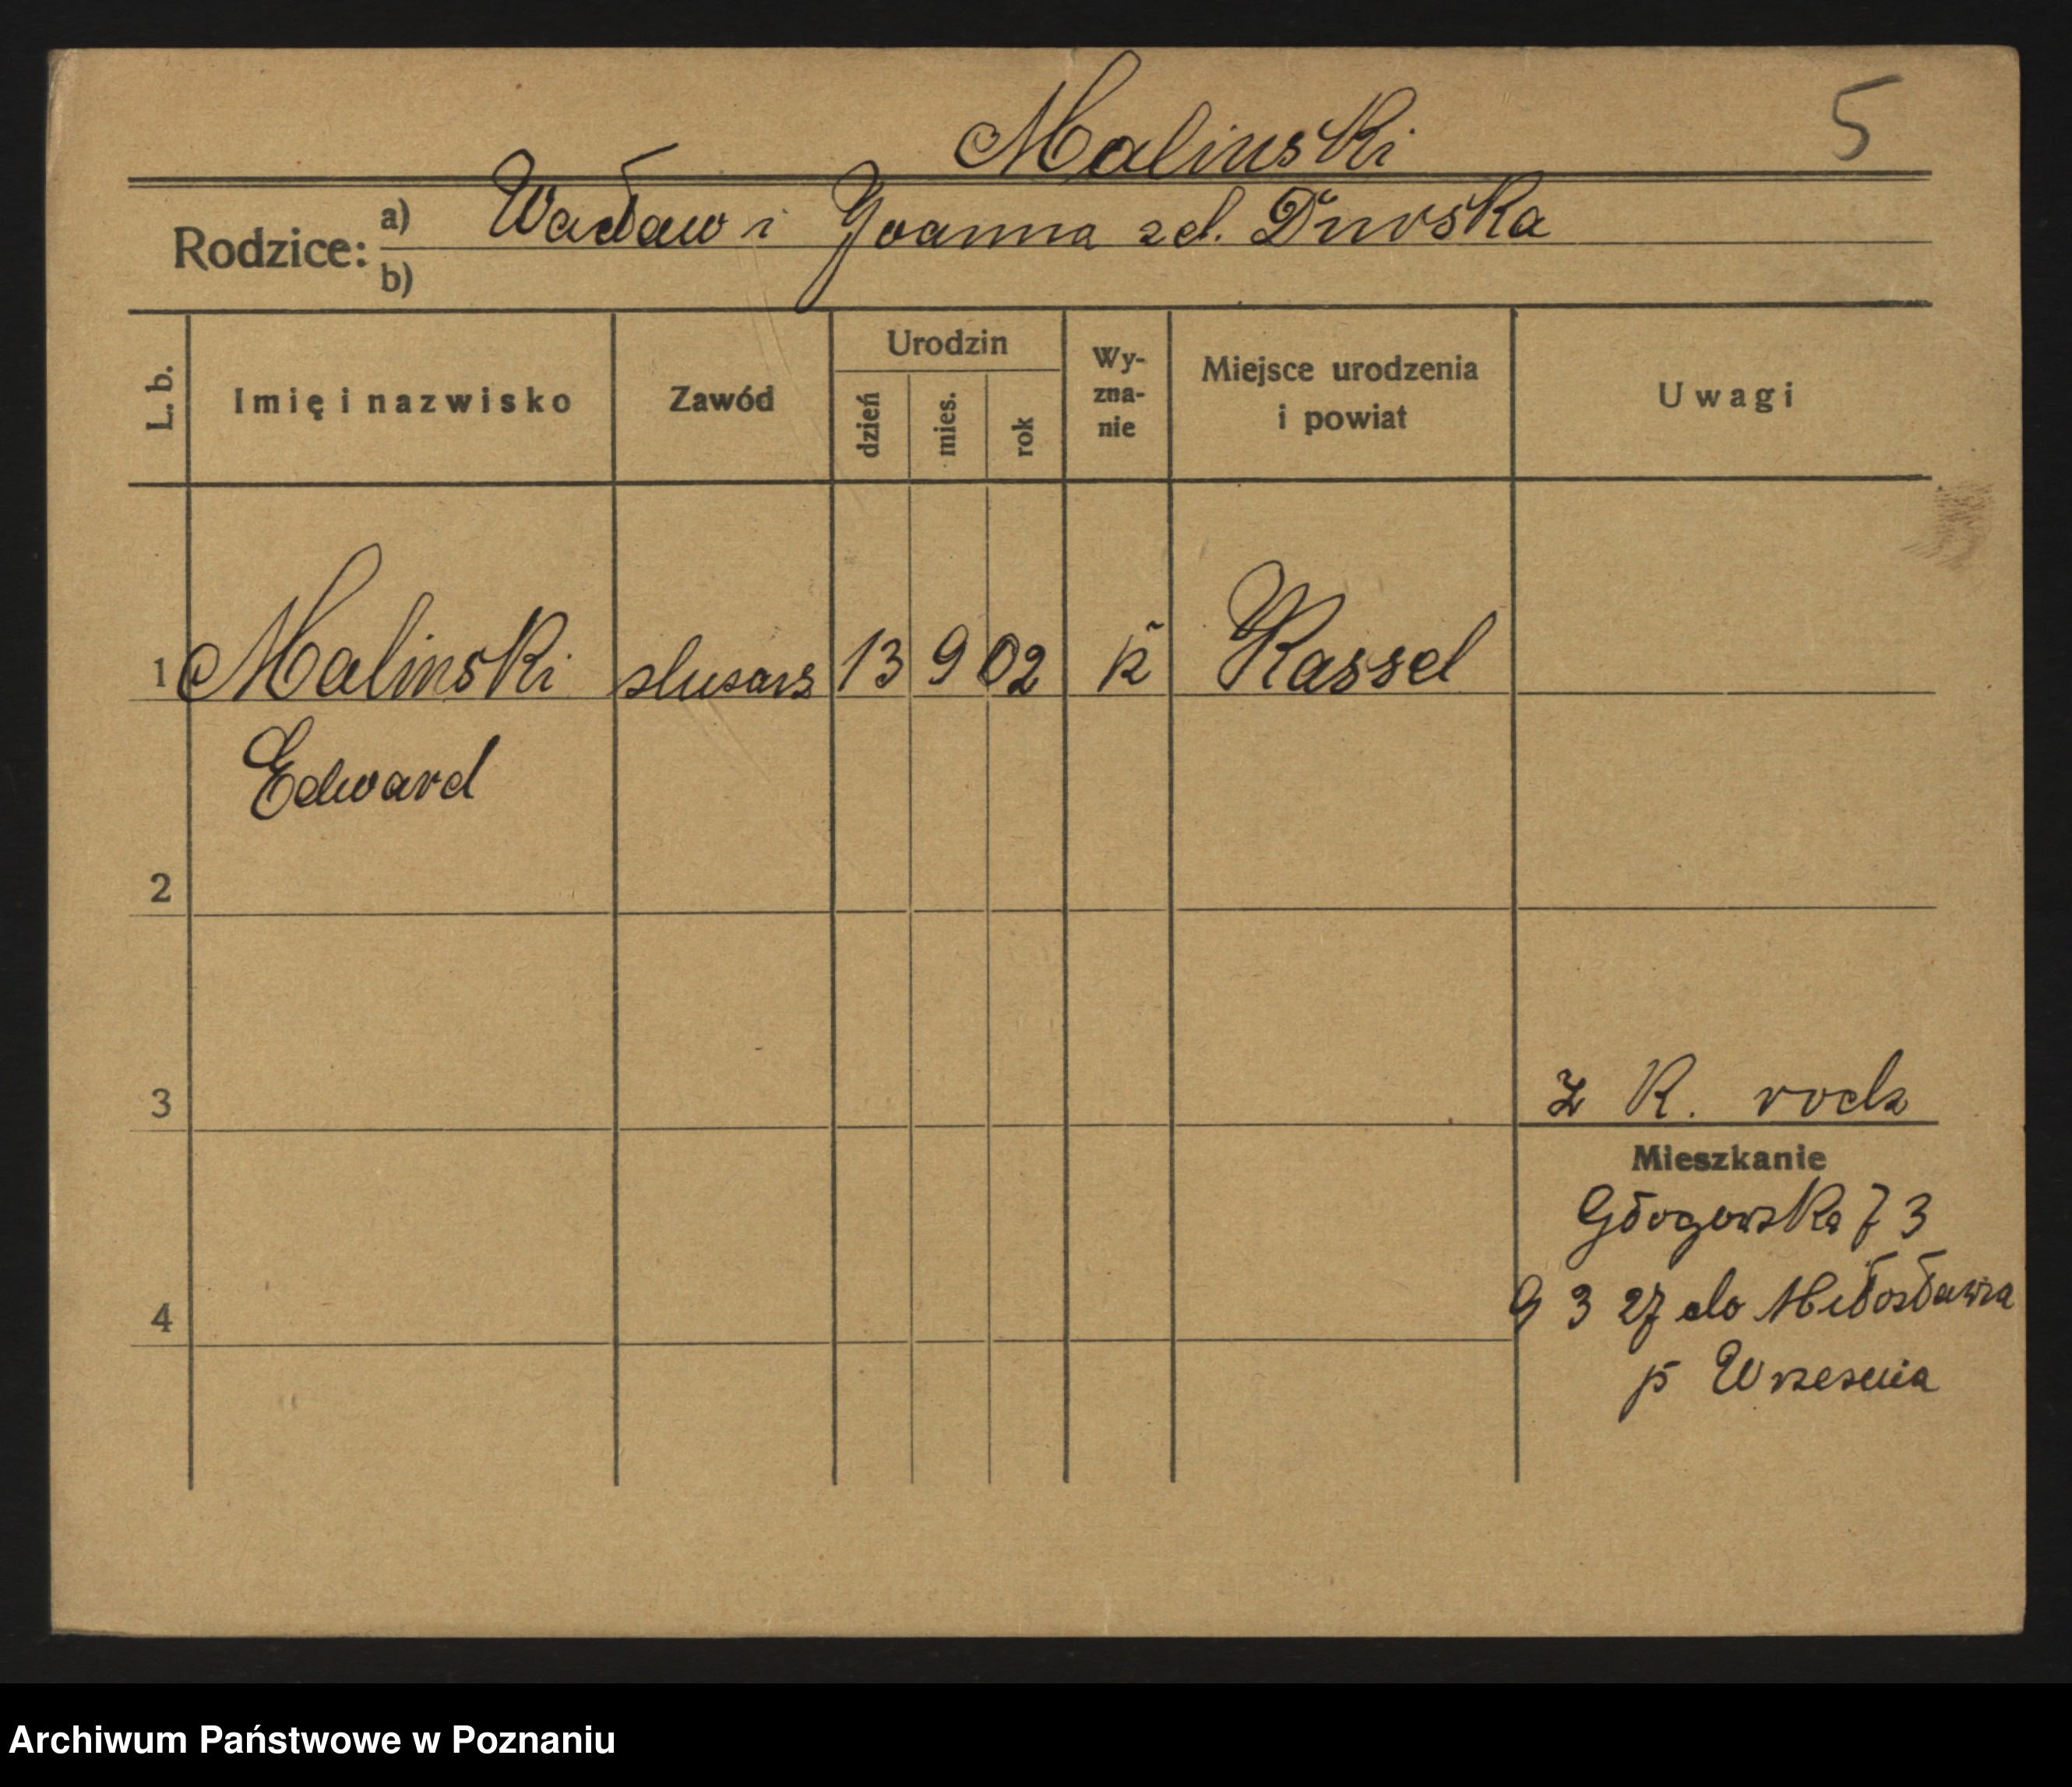 Malinski
5
Rodzice:
a) Wacław i Joanna zd. Durska
b)
L. b.
Imię i nazwisko
Zawód
Urodzin
dzień
mies.
rok
Wy-
zna-
nie
Miejsce urodzenia
i powiat
Uwagi
1 Malinski slusarz 13 9 02 k Kassel
Edward
2
3
z K. rodz
Mieszkanie
Głogowska 73
4
9 3 27 do Miłosławia
p Wrzesnia
Archiwum Państwowe w Poznaniu